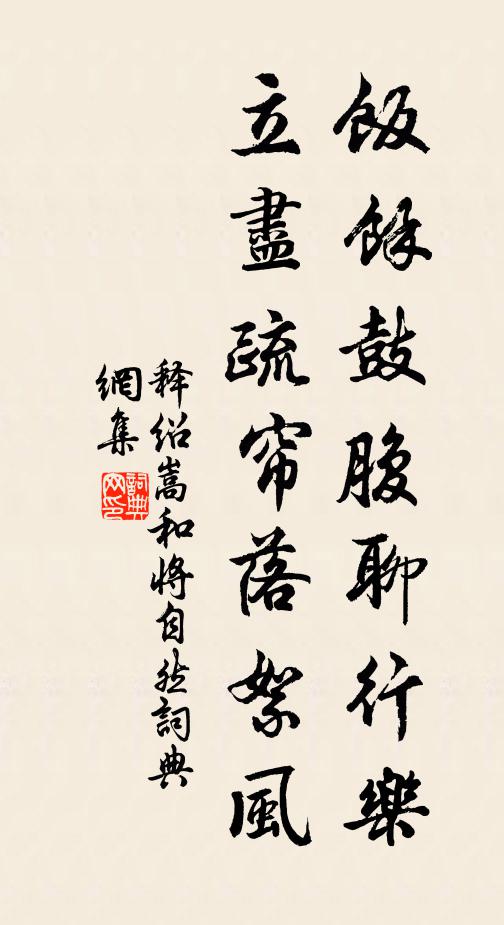 飯餘鼓腹聊行樂
立盡疏帘落絮風
释绍嵩和將自然詞典
網集
詞典
网印